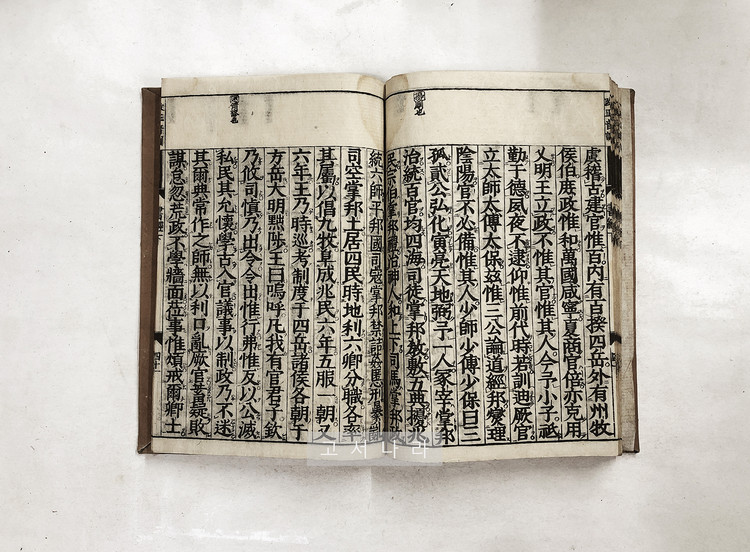 虞稽古建官惟百内有百揆四岳外有州牧
侯伯庶政惟和萬國咸寧夏商官倍亦克用
乂明王立政不惟其官惟其人今予小子祗
勤于德夙夜不逮仰惟前代時若訓迪厥官
立太師太傅太保玆惟三公論道經邦燮理
陰陽官不必備惟其人少師少傅少保曰三
孤貳公弘化寅亮天地弼予一人冢宰掌邦
治統百官均四海司徒掌邦敎敷五典擾兆
民宗伯掌邦禮治神人和上下司馬掌邦政
統六師平邦國司寇掌邦禁詰姦慝刑暴亂
司空掌邦土居四民時地利六卿分職各率
其屬以倡九牧阜成兆民六年五服一朝又
六年王乃時巡考制度于四岳諸侯各朝于
方岳大明黜陟王曰嗚呼凡我有官君子欽
乃攸司愼乃出令令出惟行弗惟反以公滅
私民其允懷學古入官議事以制政乃不迷
其爾典常作之師無以利口亂厥官蓄疑敗
謀怠忽荒政不學牆面莅事惟煩戒爾卿士
고서나라